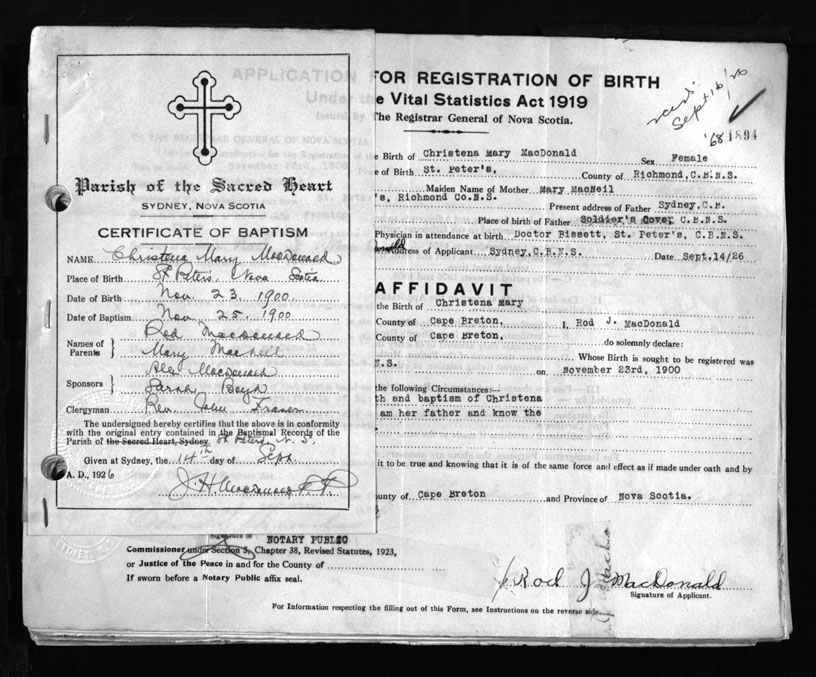 Parish of the Sacred Heart
SYDNEY, NOVA SCOTIA
CERTIFICATE OF BAPTISM
NAME Christena Mary MacDonald
Place of Birth St Peters, Nova Scotia
Date of Birth Nov. 23. 1900
Date of Baptism Nov. 25. 1900
Names of Parents Rod MacDonald
Mary MacNeil
Sponsors Alex MacDonald
Sarah Boyd
Clergyman Rev John Fraser
The undersigned hereby certifies that the above is in conformity
with the original entry contained in the Baptismal Records of the
Parish of the Sacred Heart, Sydney. St Peters, N. S.
Given at Sydney, the 14th day of Sept.
A. D., 1926
J. H. MacDonald P.P.
APPLICATION FOR REGISTRATION OF BIRTH
Under the Vital Statistics Act 1919
The Registrar General of Nova Scotia.
Sept 16/26
'68 1894
e Birth of Christena Mary MacDonald Sex Female
e of Birth St. Peter's, County of Richmond, C.B.N.S.
Maiden Name of Mother Mary MacNeil
's, Richmond Co.N.S. Present address of Father Sydney, C.B.
Place of birth of Father Soldier's Cove, C.B.N.S.
Physician in attendance at birth Doctor Bissett, St. Peter's, C.B.N.S.
Address of Applicant Sydney, C.B.N.S. Date Sept.14/26
AFFIDAVIT
the Birth of Christena Mary
County of Cape Breton, I, Rod J. MacDonald
County of Cape Breton, do solemnly declare:
Whose Birth is sought to be registered was
N.S. on November 23rd, 1900
the following Circumstances:—
th and baptism of Christena
am her father and know the
it to be true and knowing that it is of the same force and effect as if made under oath and by
unty of Cape Breton and Province of Nova Scotia.
Signature of
NOTARY PUBLIC
Commissioner under Section 5, Chapter 38, Revised Statutes, 1923,
or Justice of the Peace in and for the County of
If sworn before a Notary Public affix seal.
Rod J MacDonald
Signature of Applicant.
For Information respecting the filling out of this Form, see Instructions on the reverse side.